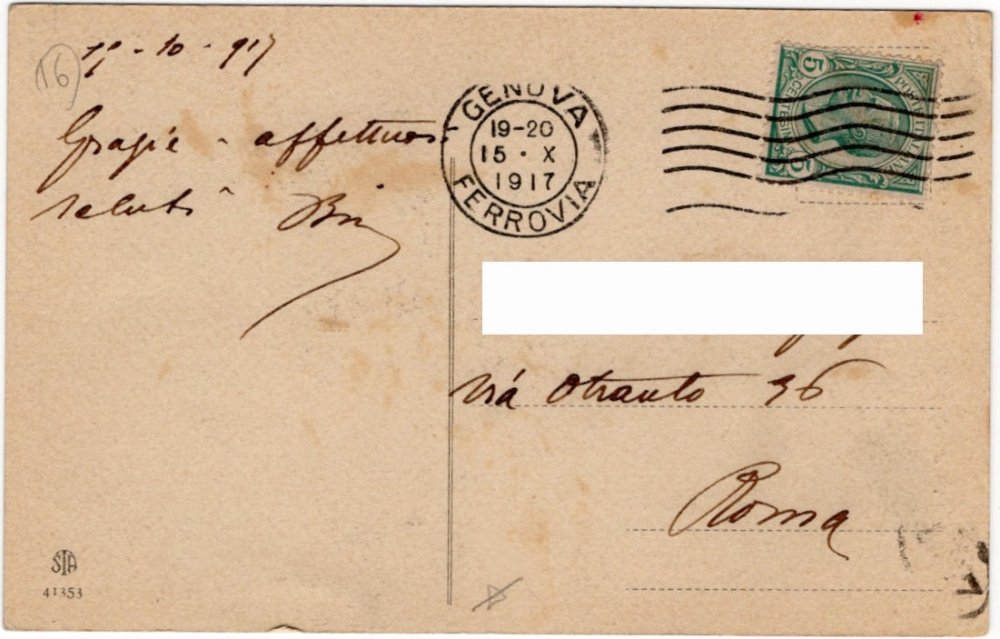 16
15-10-917
Grazie - affettuosi
saluti
GENOVA
19-20
15 · X
1917
FERROVIA
5
POSTE ITALIANE
CENTESIMI
5
Via Otranto 36
Roma
SIA
41353